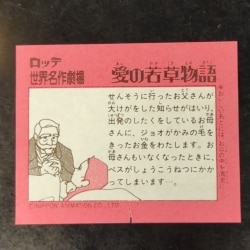 ロッテ
世界名作劇場
愛の若草物語
せんそうに行ったお父さんが
大けがをした知らせがはいり、
出発のしたくをしているお母
さんに、ジョオがかみの毛を
きったお金をわたします。お
母さんもいなくなったときに、
ベスがしょうこうねつにかか
ってしまいます…。
©NIPPON ANIMATION CO., LTD.